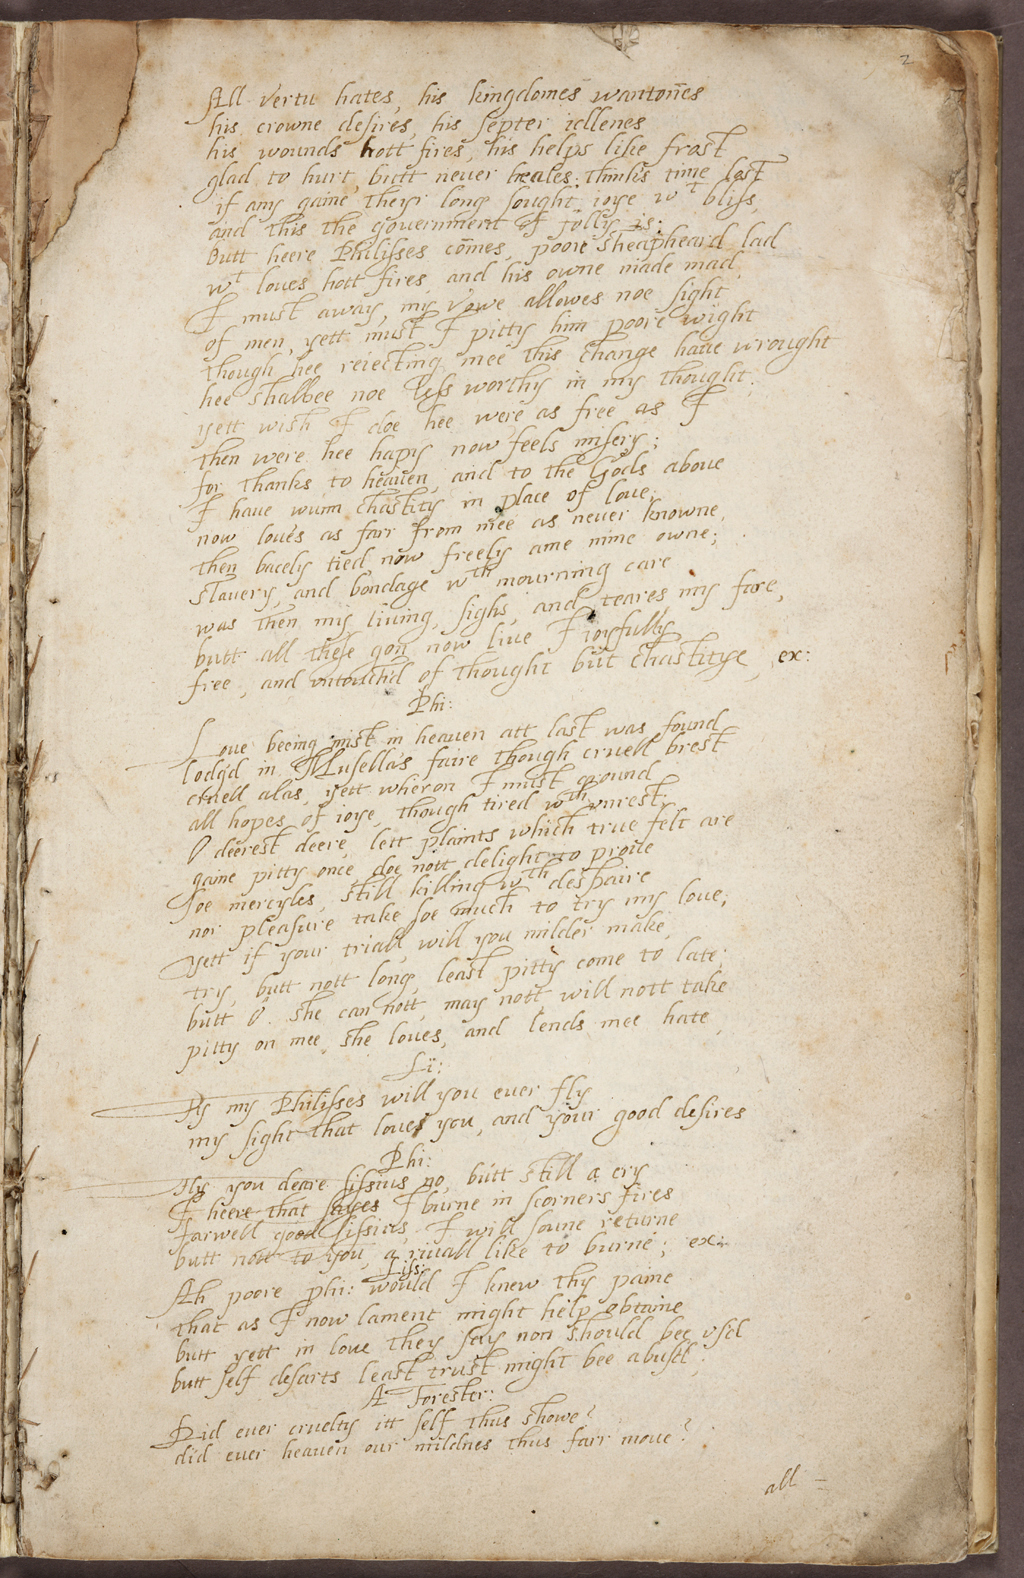 2
All vertu hates, his kingdomes wantonnes
his crowne desires, his septer idlenes
his wounds hott fires, his helps like frost
glad to hurt, butt never heales: thinks time lost
if any gaine theyr long sought ioye wt bliss,
and this the government of folly is:
Butt heere Philisses comes, poore sheapheard lad
wt loves hott fires, and his owne made mad
I must away, my vowe allowes noe sight
of men, yett must I pitty him poore wight
though hee reiecting mee this change have wrought
hee shalbee noe less worthy in my thought.
yett wish I doe hee were as free as I
then were hee hapy now feels misery;
for thanks to heaven, and to the Gods above
I have wunn chastity in place of love;
now love's as farr from mee as never knowne,
then bacely tied now freely ame mine owne;
slavery, and bondage wth mourning care
was then my living, sighs, and teares my fare,
butt all these gon now live I ioyfully
free, and untouch'd of thought but chastitye, ex:
Phi:
Love beeing mist in heaven att last was found
lodg'd in Musella's faire though cruell brest
cruell alas, yett wheron I must ground
all hopes of ioye, though tired wth unrest;
O deerest deere, lett plaints which true felt are
gaine pitty once, doe nott delight to prove
soe mercyles, still killing wth despaire
nor pleasure take soe much to try my love;
yett if your triall, will you milder make,
try, butt nott long, least pitty come to late;
butt O. she can nott, may nott, will nott take
pitty on mee, she loves, and lends mee hate,
Li:
Ay my Philisses will you ever fly
my sight that loves you, and your good desires
Phi:
Fly you deare Lissius no, butt still a cry
I heere that I burne in scorners fires
farwell good Lissius, I will soune returne
butt nott to you, a rivall like to burne; ex:
Liss:
Ah poore phi: would I knew thy paine
that as I now lament might help obtaine
butt yett in love they say non should bee us'd
butt self desarts least trust might bee abus'd.
A Forester:
Did ever cruelty itt self thus showe?
did ever heaven our mildnes thus farr move?
all =